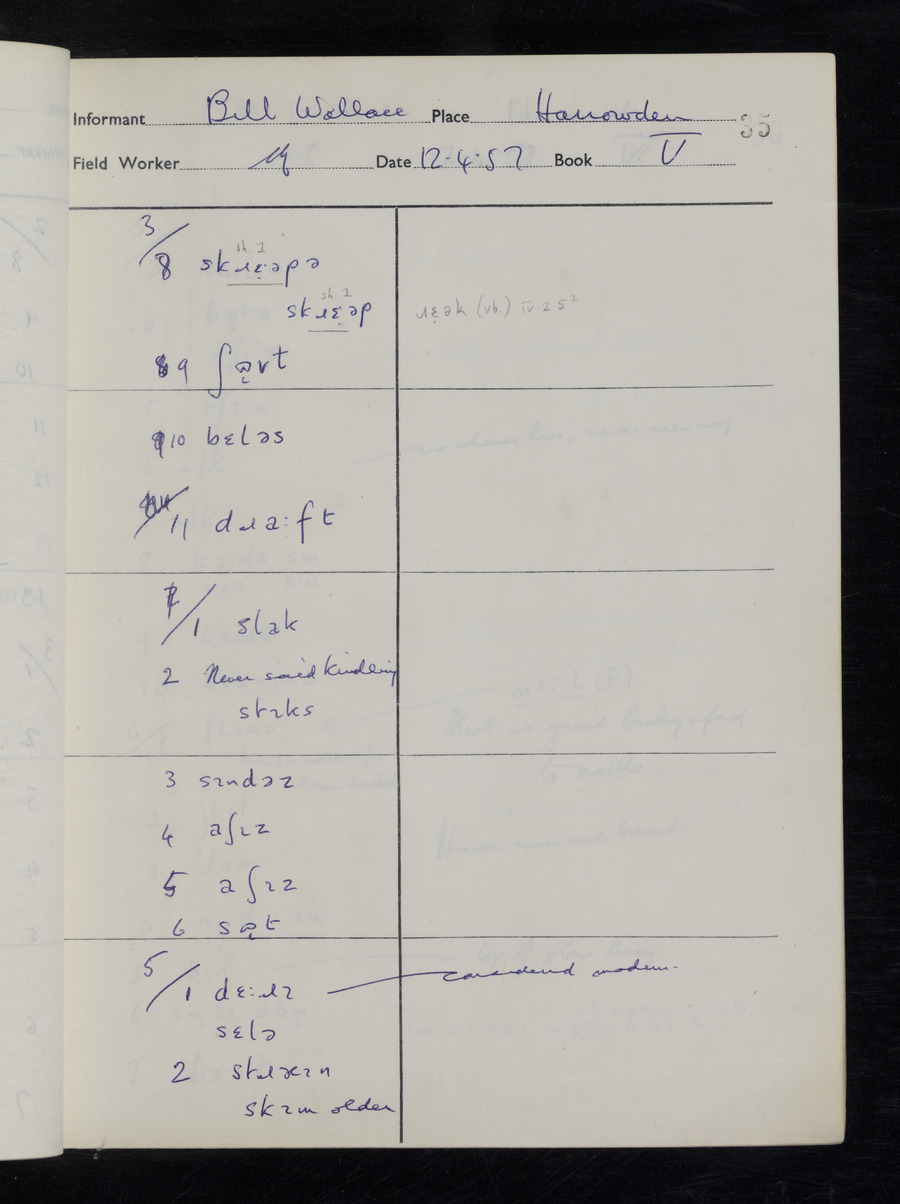 Informant Bill Wallace Place Harrowden 35
Field Worker Date 12.4.57 Book V
3/
8 skɹɛ̣əpə
sh. 1
skɹɛ̣əp
sh 1
ɹɛ̣ək (vb.) IV.2.5²
9 ʃɒvt
10 bɛləs
11 dɹa:ft
/1 slak
2 Never said kindling
stɪks
3 sɪndəz
4 aʃɪz
5 aʃɪz
6 sɒt
5/
1 dɛ:ɹɪ considered modern.
sɛlə
2
skɪm older